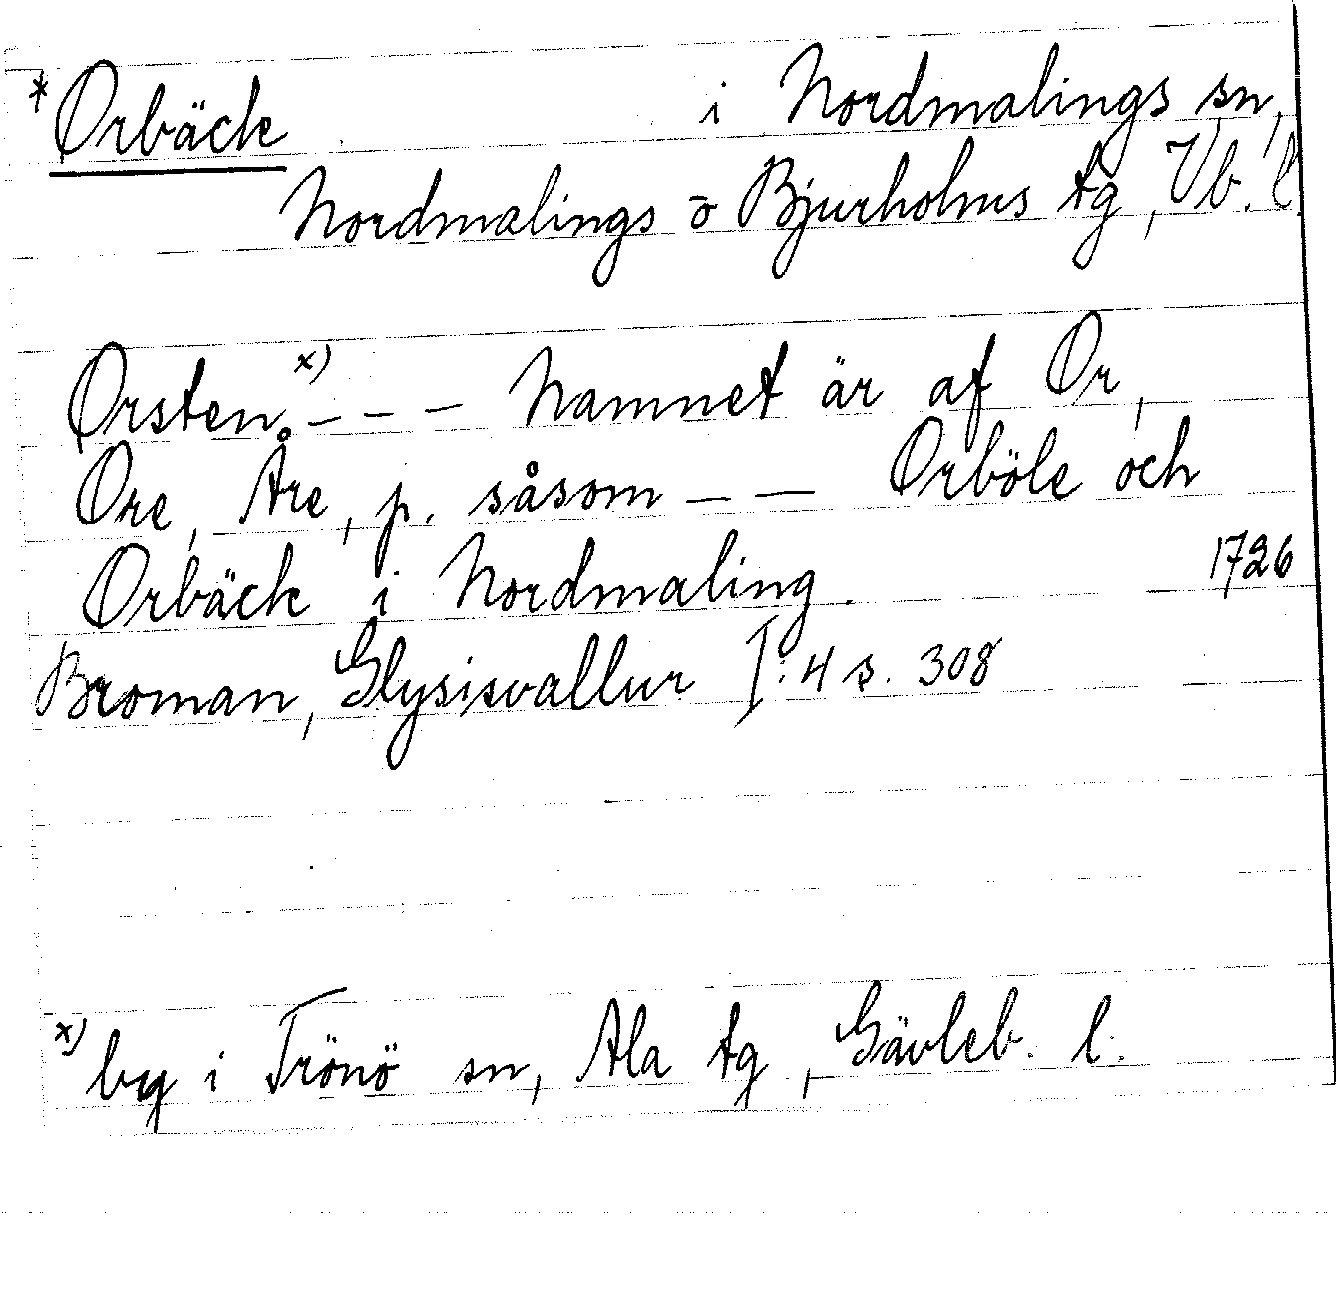 * Orbäck i Nordmalings sn,
Nordmalings o Bjurholms tg, Vb. l.
Orsten. x) – – – Namnet är af Or,
Ore, Åre, p. såsom – – Orböle och
Orbäck i Nordmaling. 1726
Broman, Glysisvallur I:4 s. 308
x) by i Trönö sn, Ala tg, Gävleb. l.